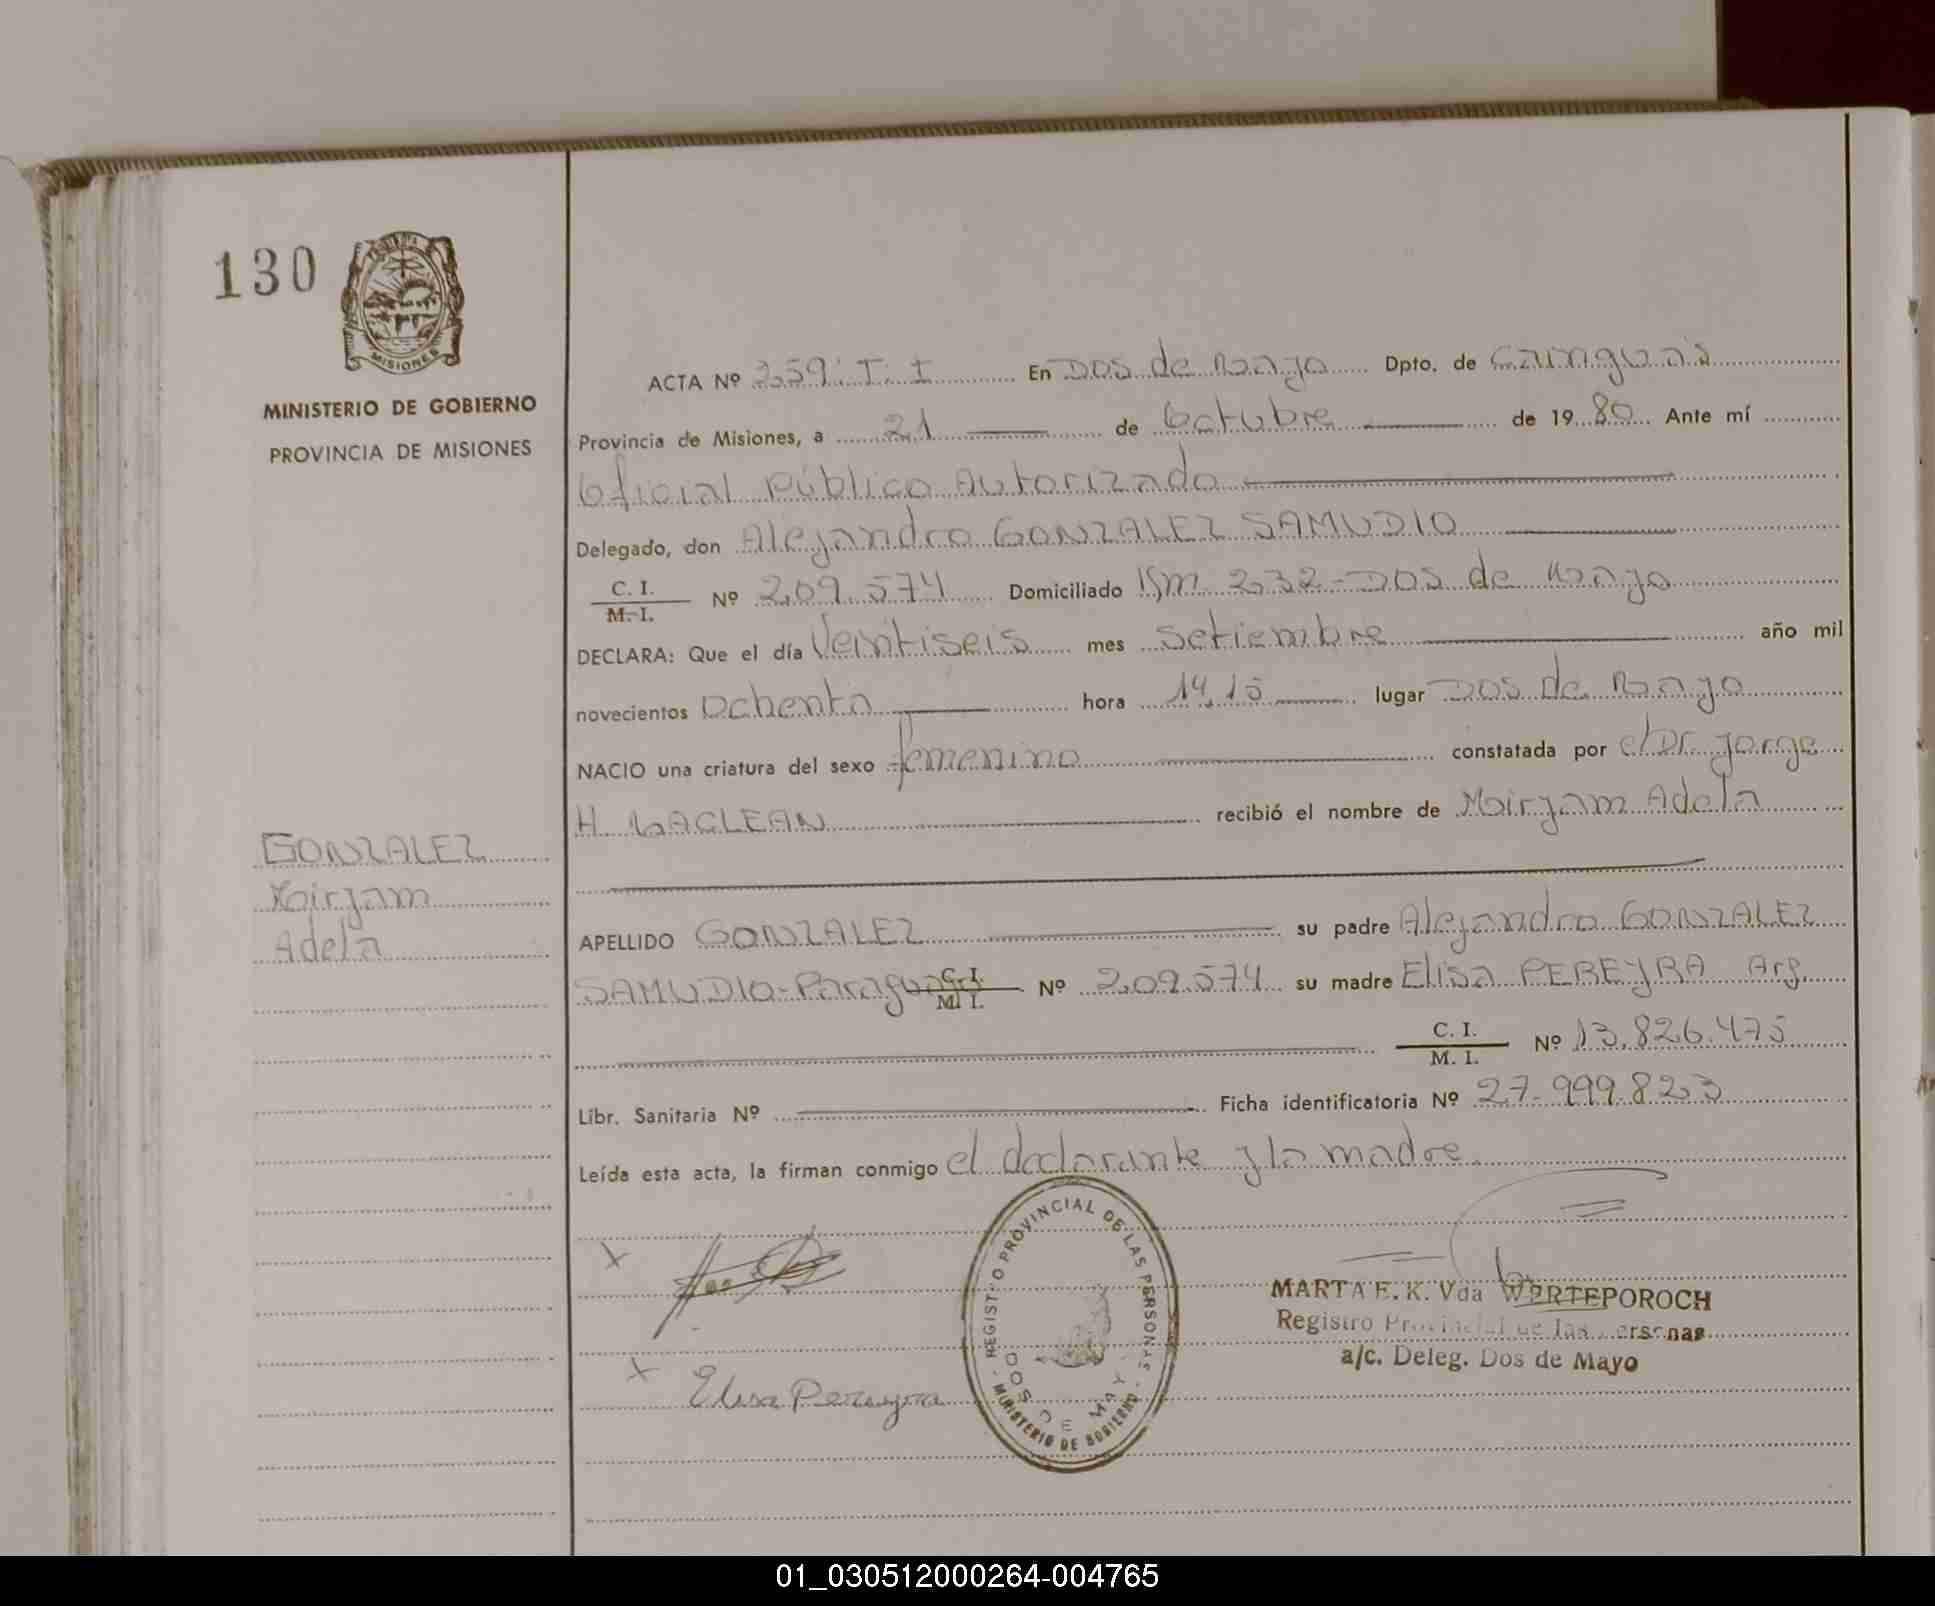 130
MISIONES
MINISTERIO DE GOBIERNO
PROVINCIA DE MISIONES
GONZALEZ
Mirjam
Adela
ACTA Nº 259 T. I En Dos de Mayo Dpto. de Cainguás
Provincia de Misiones, a 21 de Octubre de 1980 Ante mí
Oficial Público Autorizado
Delegado, don Alejandro GONZALEZ SAMUDIO
C. I.
M. I. Nº 209.574 Domiciliado Km 232-Dos de Mayo
DECLARA: Que el día Veintiseis mes Setiembre año mil
novecientos Ochenta hora 14,15 lugar Dos de Mayo
NACIO una criatura del sexo femenino constatada por el Dr. Jorge
H. MACLEAN recibió el nombre de Mirjam Adela
APELLIDO GONZALEZ su padre Alejandro GONZALEZ
SAMUDIO-Paraguayo C. I. M. I. Nº 209.574 su madre Elisa PEREYRA Arg.
C. I.
M. I. Nº 13.826.475
Libr. Sanitaria Nº Ficha identificatoria Nº 27.999.823
Leída esta acta, la firman conmigo el declarante y la madre.
x
x Elisa Pereyra
REGISTRO PROVINCIAL DE LAS PERSONAS
DOS DE MAYO
- MINISTERIO DE GOBIERNO -
MARTA E. K. Vda WERTEPOROCH
Registro Provincial de las Personas
a/c. Deleg. Dos de Mayo
01_030512000264-004765